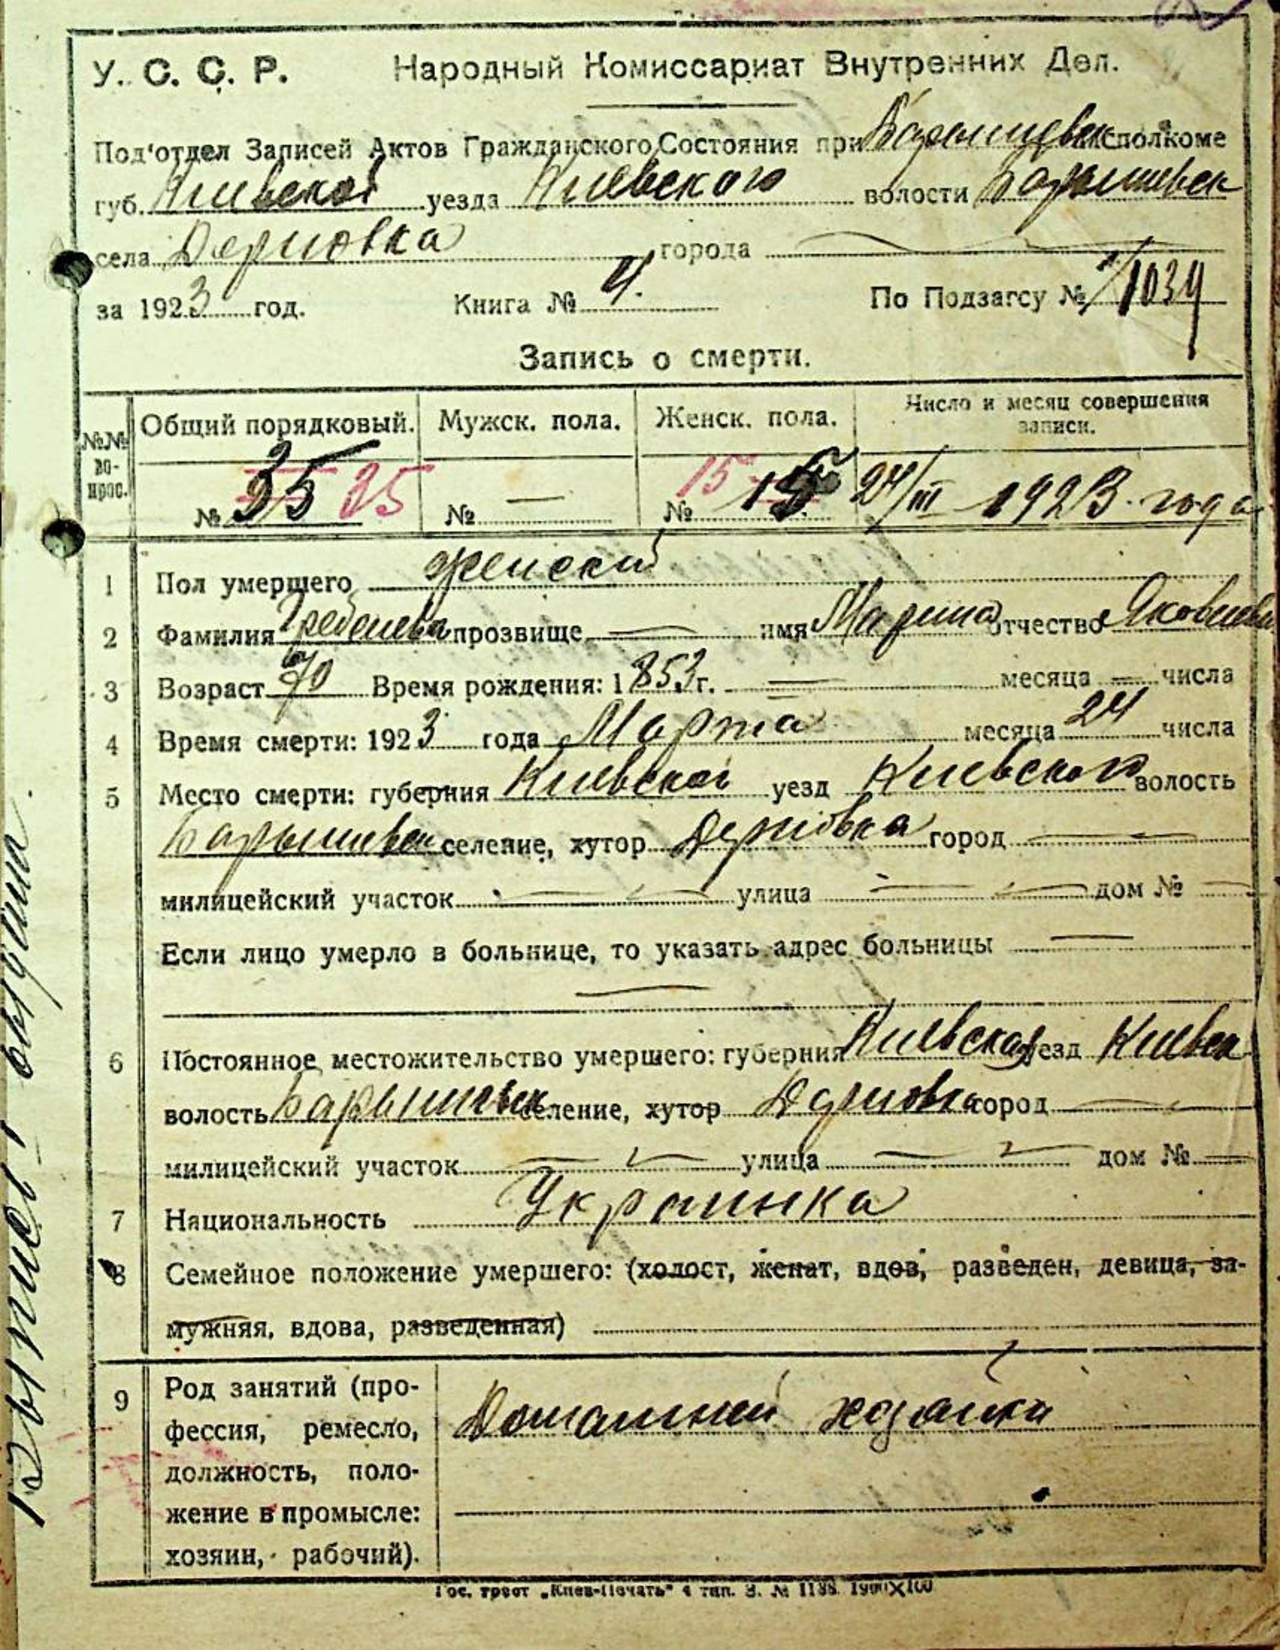 У. С. С. Р. Народный Комиссариат Внутренних Дел.
Под'отдел Записей Актов Гражданского Состояния при Барышевск исполкоме
губ. Киевской уезда Киевского волости Барышевск
села Дерновка города
за 1923 год. Книга № 4. По Подзагсу № 1/1039
Запись о смерти.
№№ во- прос. Общий порядковый. Мужск. пола. Женск. пола. Число и месяц совершения записи.
№ 35 35 № — № 15 15 24/III 1923 года
1 Пол умершего женский
2 Фамилия Гребенева прозвище — имя Марина отчество Яковлевна
3 Возраст 70 Время рождения: 1853 г. — месяца — числа
4 Время смерти: 1923 года Марта месяца 24 числа
5 Место смерти: губерния Киевской уезд Киевского волость
Барышевск селение, хутор Дерновка город —
милицейский участок — улица — дом № —
Если лицо умерло в больнице, то указать адрес больницы —
—
6 Постоянное местожительство умершего: губерния Киевская уезд Киевск
волость Барышевск селение, хутор Дерновка город —
милицейский участок — улица — дом № —
7 Национальность Украинка
8 Семейное положение умершего: (холост, женат, вдов, разведен, девица, за-
мужняя, вдова, разведенная)
9 Род занятий (про-
фессия, ремесло,
должность, поло-
жение в промысле:
хозяин, рабочий).
Домашней хозяйки
Гос. трест „Киев-Печать" 4 тип. З. № 1188. 1900Х100